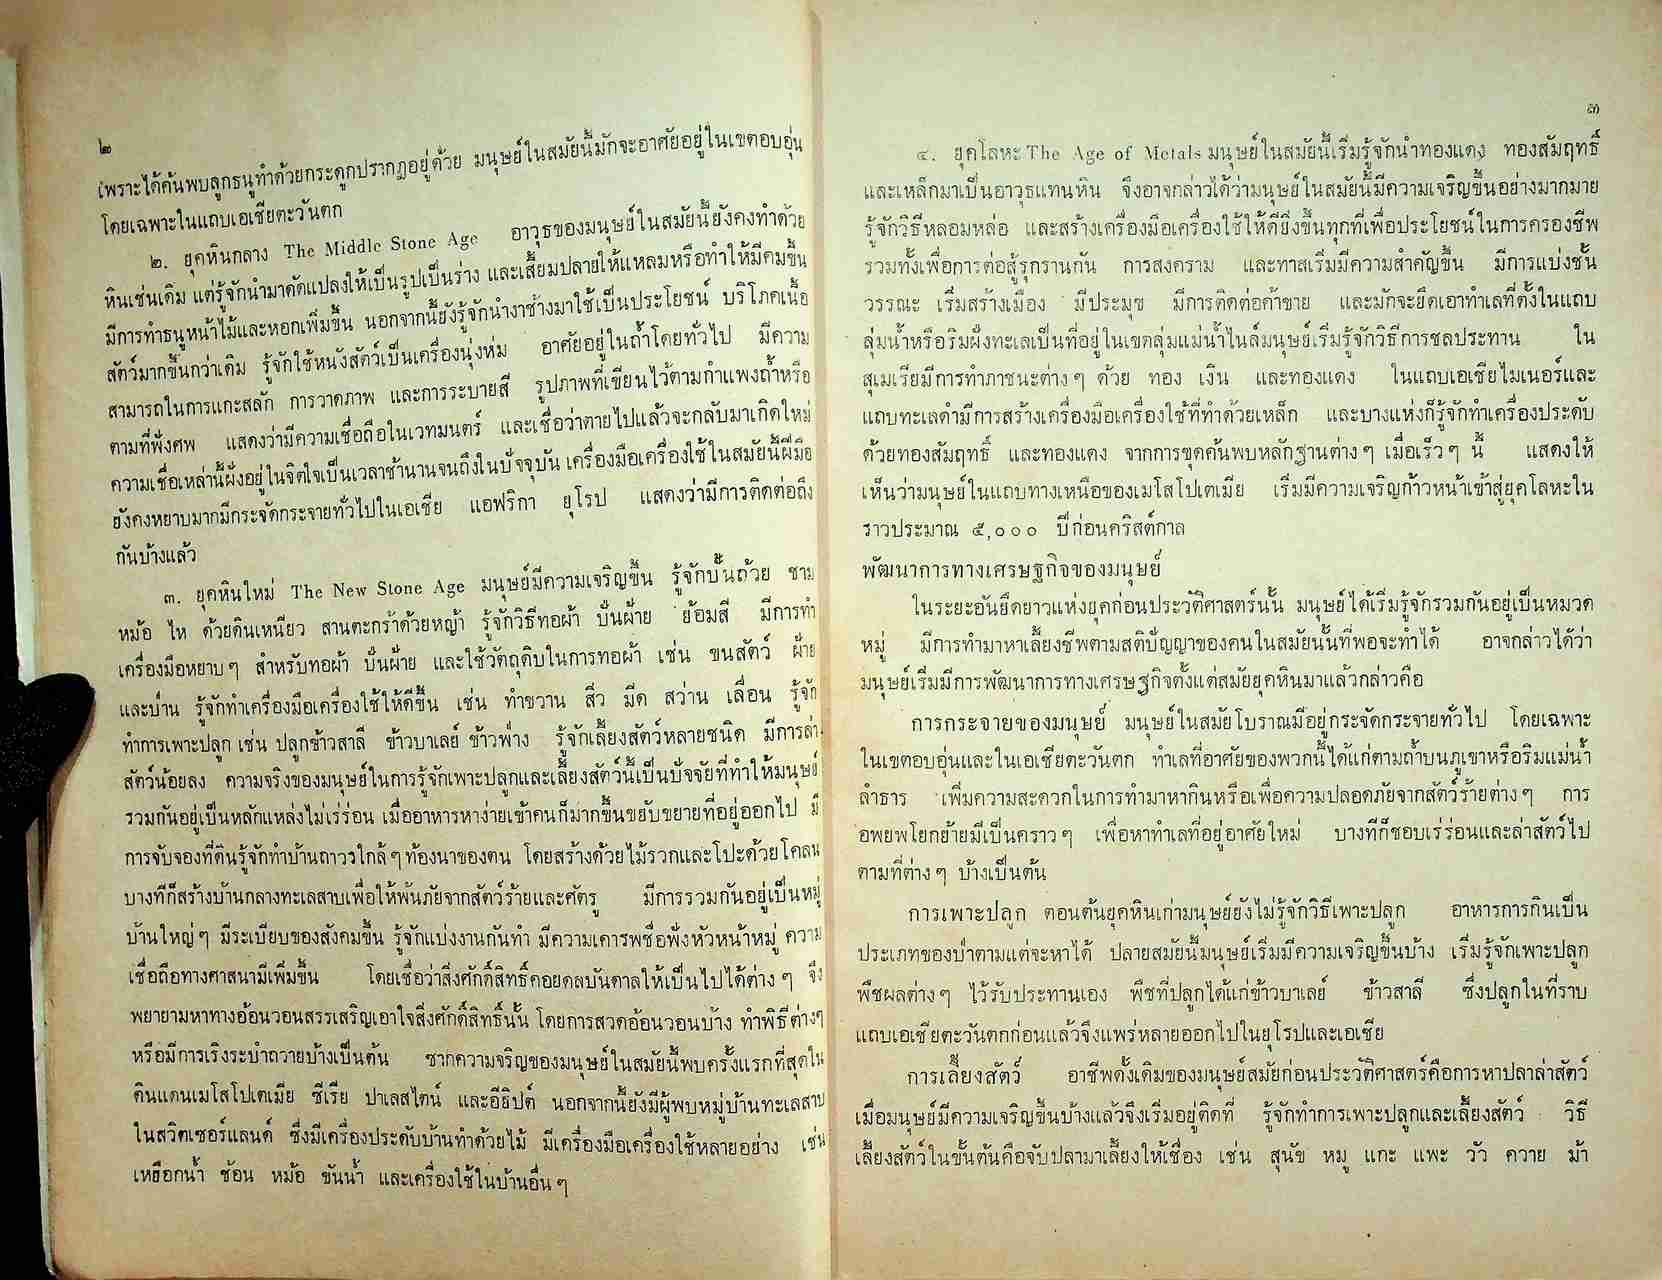 ๒
เพราะได้ค้นพบลูกธนูทำด้วยกระดูกปรากฏอยู่ด้วย มนุษย์ในสมัยนี้มักจะอาศัยอยู่ในเขตอบอุ่น
โดยเฉพาะในแถบเอเซียตะวันตก
๒. ยุคหินกลาง The Middle Stone Age อาวุธของมนุษย์ในสมัยนี้ยังคงทำด้วย
หินเช่นเดิม แต่รู้จักนำมาดัดแปลงให้เป็นรูปเป็นร่าง และเสี้ยมปลายให้แหลมหรือทำให้มีคมขึ้น
มีการทำธนูหน้าไม้และหอกเพิ่มขึ้น นอกจากนี้ยังรู้จักนำงาช้างมาใช้เป็นประโยชน์ บริโภคเนื้อ
สัตว์มากขึ้นกว่าเดิม รู้จักใช้หนังสัตว์เป็นเครื่องนุ่งห่ม อาศัยอยู่ในถ้ำโดยทั่วไป มีความ
สามารถในการแกะสลัก การวาดภาพ และการระบายสี รูปภาพที่เขียนไว้ตามกำแพงถ้ำหรือ
ตามที่ฝังศพ แสดงว่ามีความเชื่อถือในเวทมนตร์ และเชื่อว่าตายไปแล้วจะกลับมาเกิดใหม่
ความเชื่อเหล่านี้ฝังอยู่ในจิตใจเป็นเวลาช้านานจนถึงในปัจจุบัน เครื่องมือเครื่องใช้ในสมัยนี้ฝีมือ
ยังคงหยาบมากมีกระจัดกระจายทั่วไปในเอเซีย แอฟริกา ยุโรป แสดงว่ามีการติดต่อถึง
กันบ้างแล้ว
๓. ยุคหินใหม่ The New Stone Age มนุษย์มีความเจริญขึ้น รู้จักปั้นถ้วย ชาม
หม้อ ไห ด้วยดินเหนียว สานตะกร้าด้วยหญ้า รู้จักวิธีทอผ้า ปั่นฝ้าย ย้อมสี มีการทำ
เครื่องมือหยาบๆ สำหรับทอผ้า ปั่นฝ้าย และใช้วัตถุดิบในการทอผ้า เช่น ขนสัตว์ ฝ้าย
และป่าน รู้จักทำเครื่องมือเครื่องใช้ให้ดีขึ้น เช่น ทำขวาน สิ่ว มีด สว่าน เลื่อน รู้จัก
ทำการเพาะปลูก เช่น ปลูกข้าวสาลี ข้าวบาเลย์ ข้าวฟ่าง รู้จักเลี้ยงสัตว์หลายชนิด มีการล่า
สัตว์น้อยลง ความจริงของมนุษย์ในการรู้จักเพาะปลูกและเลี้ยงสัตว์นี้เป็นปัจจัยที่ทำให้มนุษย์
รวมกันอยู่เป็นหลักแหล่งไม่เร่ร่อน เมื่ออาหารหาง่ายเข้าคนก็มากขึ้นขยับขยายที่อยู่ออกไป มี
การจับจองที่ดินรู้จักทำบ้านถาวรใกล้ๆท้องนาของตน โดยสร้างด้วยไม้รวกและโปะด้วยโคลน
บางทีก็สร้างบ้านกลางทะเลสาบเพื่อให้พ้นภัยจากสัตว์ร้ายและศัตรู มีการรวมกันอยู่เป็นหมู่
บ้านใหญ่ๆ มีระเบียบของสังคมขึ้น รู้จักแบ่งงานกันทำ มีความเคารพชื่อฟังหัวหน้าหมู่ ความ
เชื่อถือทางศาสนามีเพิ่มขึ้น โดยเชื่อว่าสิ่งศักดิ์สิทธิ์คอยดลบันดาลให้เป็นไปได้ต่างๆ จึง
พยายามหาทางอ้อนวอนสรรเสริญเอาใจสิ่งศักดิ์สิทธิ์นั้น โดยการสวดอ้อนวอนบ้าง ทำพิธีต่างๆ
หรือมีการเริงระบำถวายบ้างเป็นต้น ซากความจริญของมนุษย์ในสมัยนี้พบครั้งแรกที่สุดใน
ดินแดนเมโสโปเตเมีย ซีเรีย ปาเลสไตน์ และอียิปต์ นอกจากนี้ยังมีผู้พบหมู่บ้านทะเลสาบ
ในสวิตเซอร์แลนด์ ซึ่งมีเครื่องประดับบ้านทำด้วยไม้ มีเครื่องมือเครื่องใช้หลายอย่าง เช่น
เหยือกน้ำ ช้อน หม้อ ขันน้ำ และเครื่องใช้ในบ้านอื่นๆ
๓
๔. ยุคโลหะ The Age of Metals มนุษย์ในสมัยนี้เริ่มรู้จักนำทองแดง ทองสัมฤทธิ์
และเหล็กมาเป็นอาวุธแทนหิน จึงอาจกล่าวได้ว่ามนุษย์ในสมัยนี้มีความเจริญขึ้นอย่างมากมาย
รู้จักวิธีหลอมหล่อ และสร้างเครื่องมือเครื่องใช้ให้ดียิ่งขึ้นทุกทีเพื่อประโยชน์ในการครองชีพ
รวมทั้งเพื่อการต่อสู้รุกรานกัน การสงคราม และทาสเริ่มมีความสำคัญขึ้น มีการแบ่งชั้น
วรรณะ เริ่มสร้างเมือง มีประมุข มีการติดต่อค้าขาย และมักจะยึดเอาทำเลที่ตั้งในแถบ
ลุ่มน้ำหรือริมฝั่งทะเลเป็นที่อยู่ในเขตลุ่มแม่น้ำไนล์มนุษย์เริ่มรู้จักวิธีการชลประทาน ใน
สุเมเรียมีการทำภาชนะต่างๆ ด้วย ทอง เงิน และทองแดง ในแถบเอเซียไมเนอร์และ
แถบทะเลดำมีการสร้างเครื่องมือเครื่องใช้ที่ทำด้วยเหล็ก และบางแห่งก็รู้จักทำเครื่องประดับ
ด้วยทองสัมฤทธิ์ และทองแดง จากการขุดค้นพบหลักฐานต่างๆ เมื่อเร็วๆ นี้ แสดงให้
เห็นว่ามนุษย์ในแถบทางเหนือของเมโสโปเตเมีย เริ่มมีความเจริญก้าวหน้าเข้าสู่ยุคโลหะใน
ราวประมาณ ๕,๐๐๐ ปีก่อนคริสต์กาล
พัฒนาการทางเศรษฐกิจของมนุษย์
ในระยะอันยืดยาวแห่งยุคก่อนประวัติศาสตร์นั้น มนุษย์ได้เริ่มรู้จักรวมกันอยู่เป็นหมวด
หมู่ มีการทำมาหาเลี้ยงชีพตามสติปัญญาของคนในสมัยนั้นที่พอจะทำได้ อาจกล่าวได้ว่า
มนุษย์เริ่มมีการพัฒนาการทางเศรษฐกิจตั้งแต่สมัยยุคหินมาแล้วกล่าวคือ
การกระจายของมนุษย์ มนุษย์ในสมัยโบราณมีอยู่กระจัดกระจายทั่วไป โดยเฉพาะ
ในเขตอบอุ่นและในเอเซียตะวันตก ทำเลที่อาศัยของพวกนี้ได้แก่ตามถ้ำบนภูเขาหรือริมแม่น้ำ
ลำธาร เพิ่มความสะดวกในการทำมาหากินหรือเพื่อความปลอดภัยจากสัตว์ร้ายต่างๆ การ
อพยพโยกย้ายมีเป็นคราวๆ เพื่อหาทำเลที่อยู่อาศัยใหม่ บางทีก็ชอบเร่ร่อนและล่าสัตว์ไป
ตามที่ต่างๆ บ้างเป็นต้น
การเพาะปลูก ตอนต้นยุคหินเก่ามนุษย์ยังไม่รู้จักวิธีเพาะปลูก อาหารการกินเป็น
ประเภทของป่าตามแต่จะหาได้ ปลายสมัยนี้มนุษย์เริ่มมีความเจริญขึ้นบ้าง เริ่มรู้จักเพาะปลูก
พืชผลต่างๆ ไว้รับประทานเอง พืชที่ปลูกได้แก่ข้าวบาเลย์ ข้าวสาลี ซึ่งปลูกในที่ราบ
แถบเอเซียตะวันตกก่อนแล้วจึงแพร่หลายออกไปในยุโรปและเอเซีย
การเลี้ยงสัตว์ อาชีพดั้งเดิมของมนุษย์สมัยก่อนประวัติศาสตร์คือการหาปลาล่าสัตว์
เมื่อมนุษย์มีความเจริญขึ้นบ้างแล้วจึงเริ่มอยู่ติดที่ รู้จักทำการเพาะปลูกและเลี้ยงสัตว์ วิธี
เลี้ยงสัตว์ในขั้นต้นคือจับปลามาเลี้ยงให้เชื่อง เช่น สุนัข หมู แกะ แพะ วัว ควาย ม้า